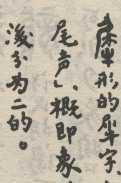 形的犀字、
尾声」、概即象
分为二的。